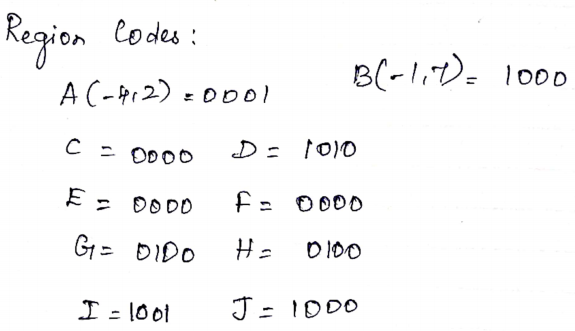 Region Codes:
A(-4,2) = 0001 B(-1,7) = 1000
C = 0000 D = 1010
E = 0000 F = 0000
G = 0100 H = 0100
I = 1001 J = 1000